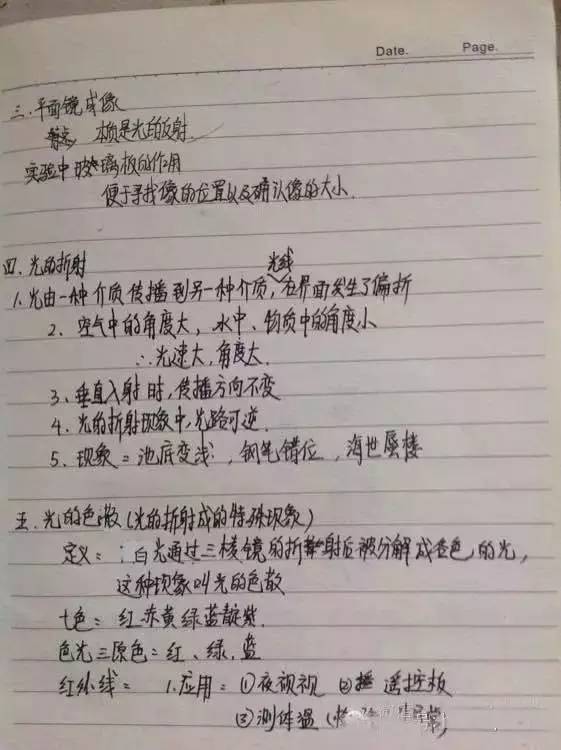 Date. Page.
三.平面镜成像
本质是光的反射
实验中玻璃板的作用
便于寻找像的位置以及确认像的大小.
四.光的折射
1.光由一种介质传播到另一种介质,光线在界面发生了偏折
2、空气中的角度大,水中、物质中的角度小
∴光速大,角度大.
3、垂直入射时,传播方向不变
4、光的折射现象中,光路可逆.
5、现象:池底变浅,钢笔错位,海世蜃楼
五.光的色散(光的折射成的特殊现象)
定义:白光通过三棱镜的折射后被分解成各色的光,
这种现象叫光的色散
七色:红赤黄绿蓝靛紫.
色光三原色:红、绿、蓝
红外线: 1.应用:①夜视视 ②遥控板
③测体温